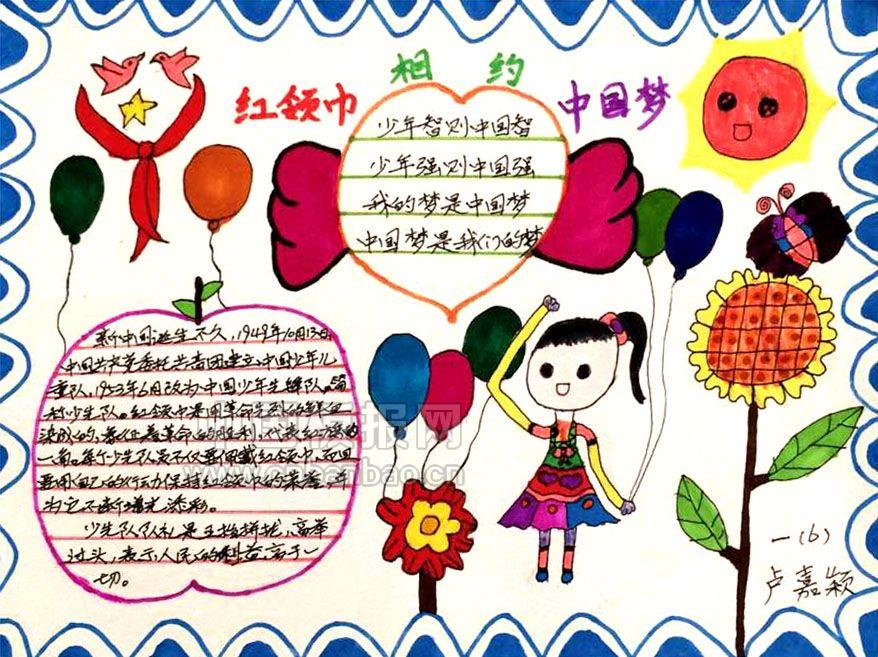 红领巾 相约 中国梦
少年智则中国智
少年强则中国强
我的梦是中国梦
中国梦是我们的梦
新中国诞生不久,1949年10月13日,
中国共产党委托共青团建立中国少年儿
童队,1953年6月改为中国少年先锋队。简
称少先队。红领巾是用革命先烈的鲜血
染成的,象征着革命的胜利,代表红旗的
一角。每个少先队员不仅要佩戴红领巾,而且
要用自己的行动保持红领巾的荣誉,并
为它不断增光添彩。
少先队队礼是五指拼拢,高举
过头,表示人民的利益高于一
切。
一(6)
卢嘉颖
www.chbanbao.cn